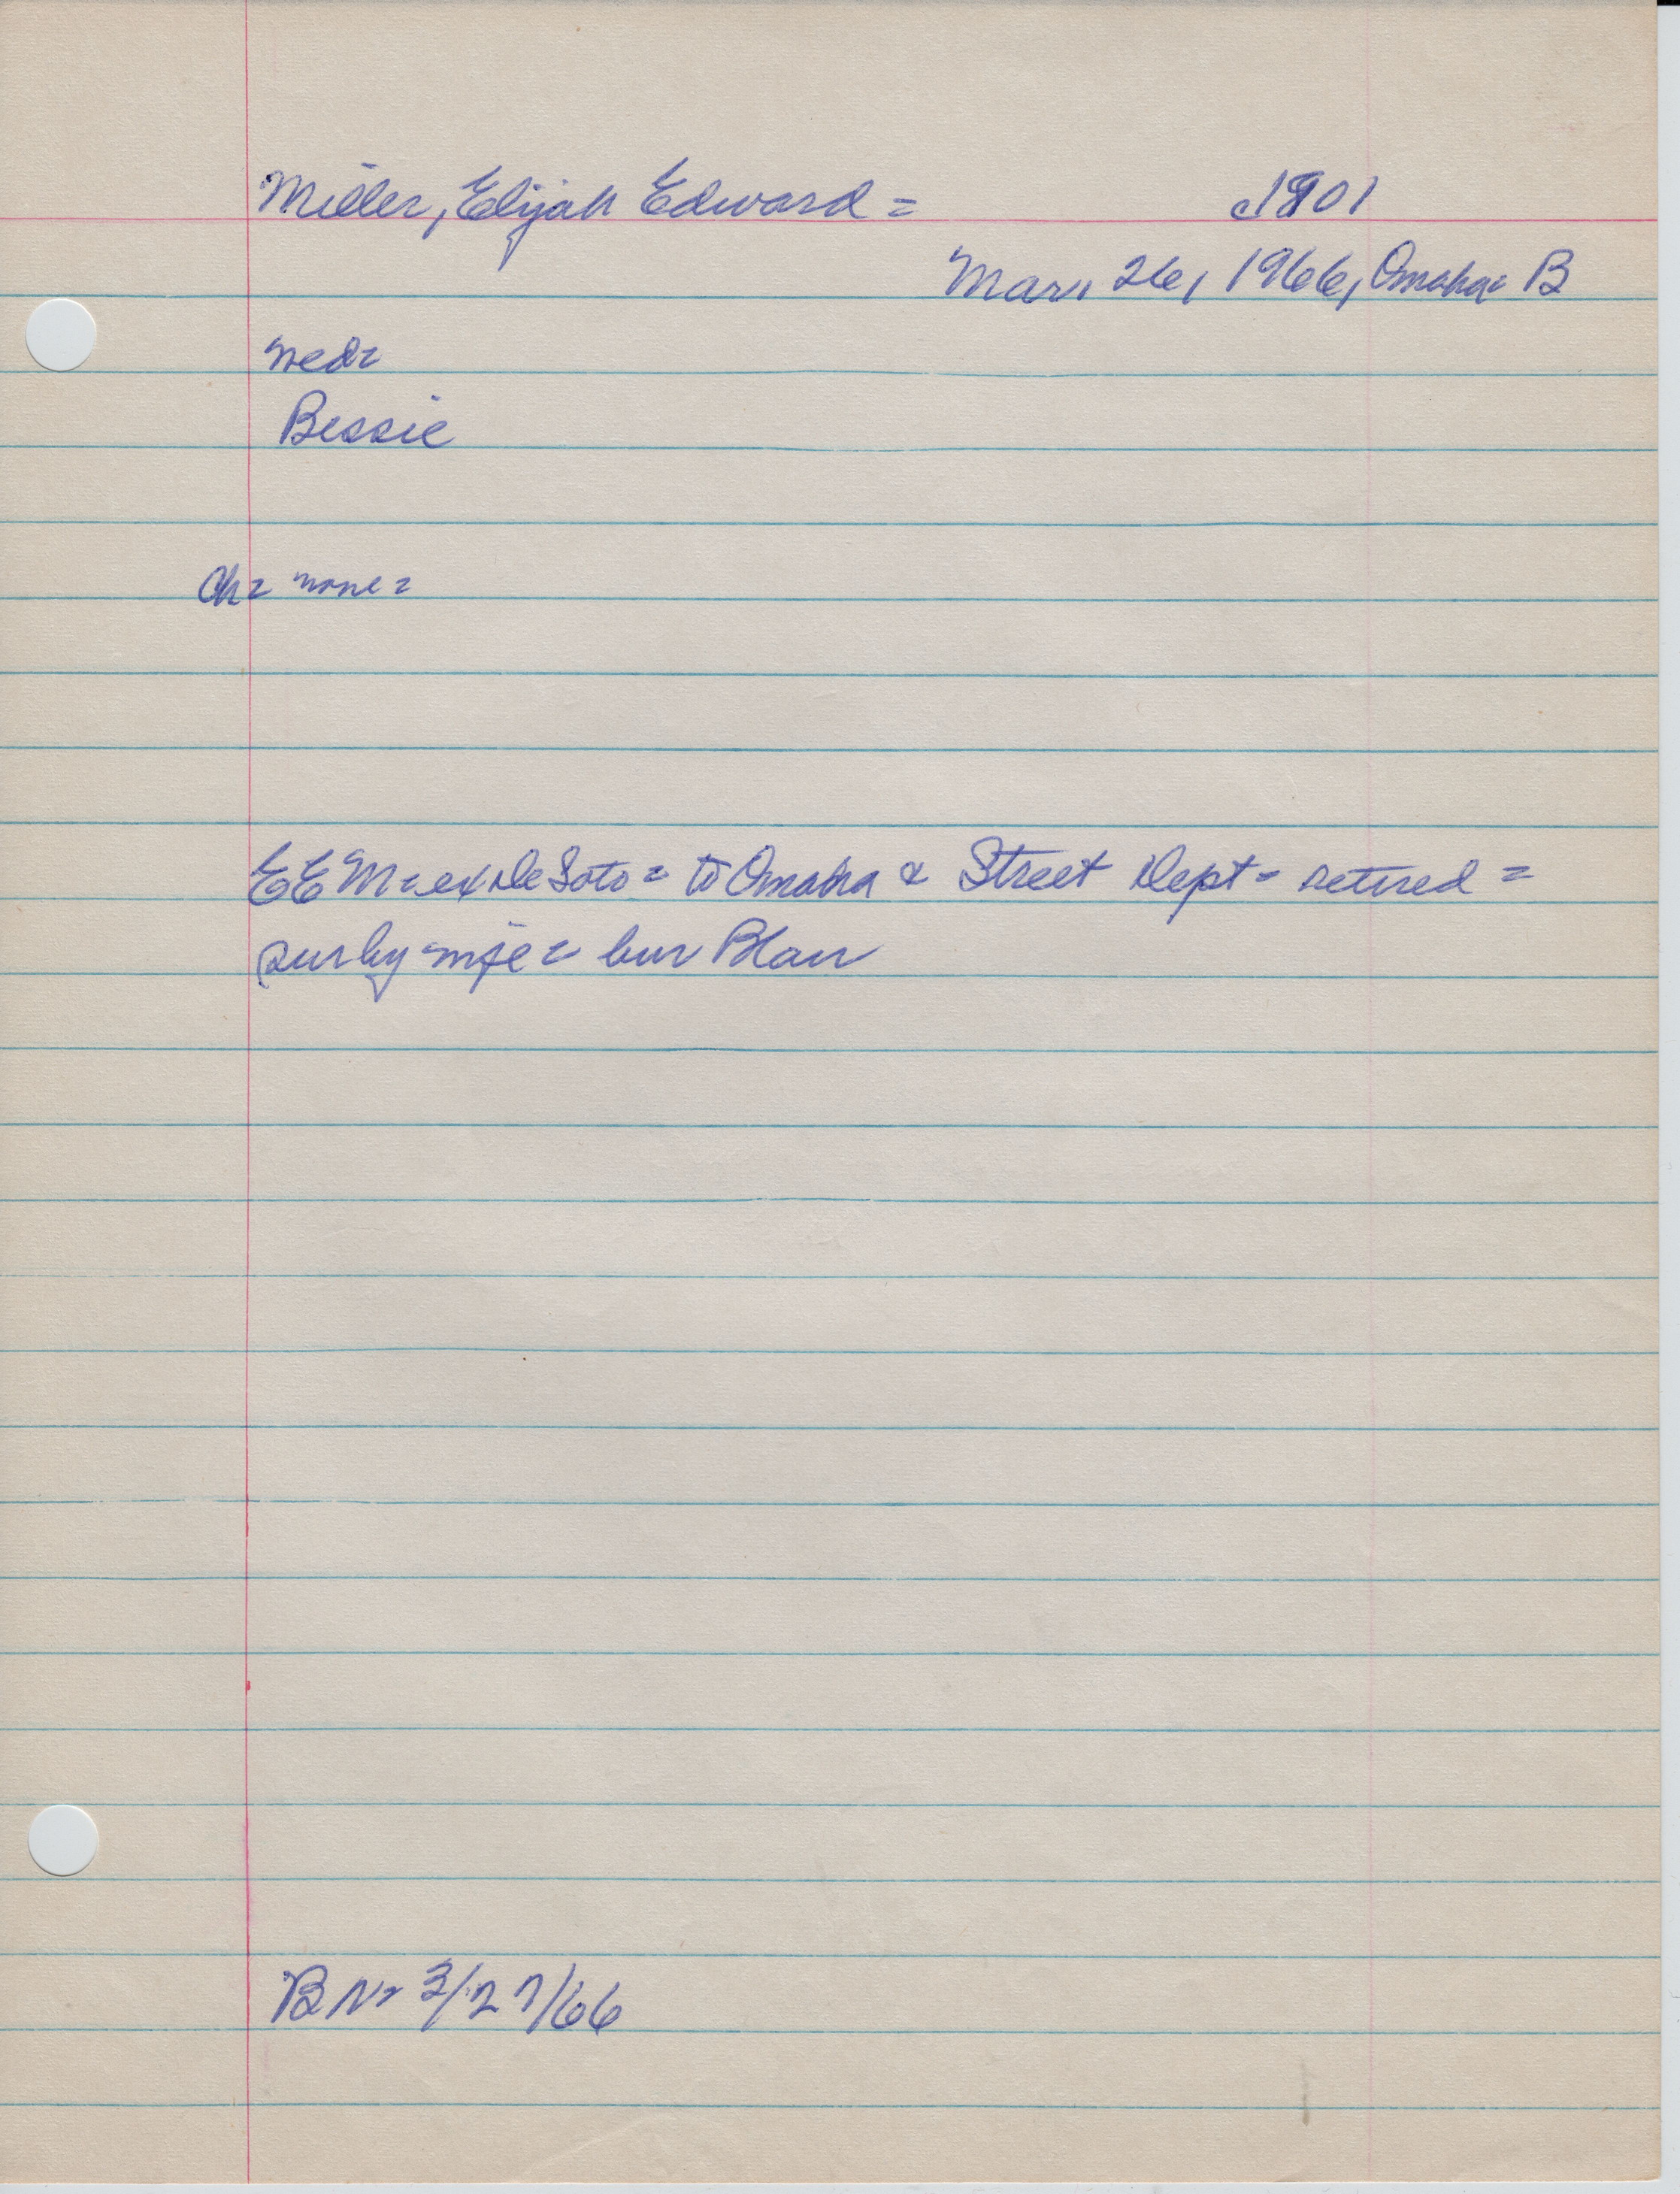 Miller, Elijah Edward = c1901
Mar. 26, 1966, Omaha = B
wed =
Bessie
Ch = none =
EEM = ex DeSoto = to Omaha & Street Dept = retired =
sur by wife = bur Blair
BN = 3/27/66